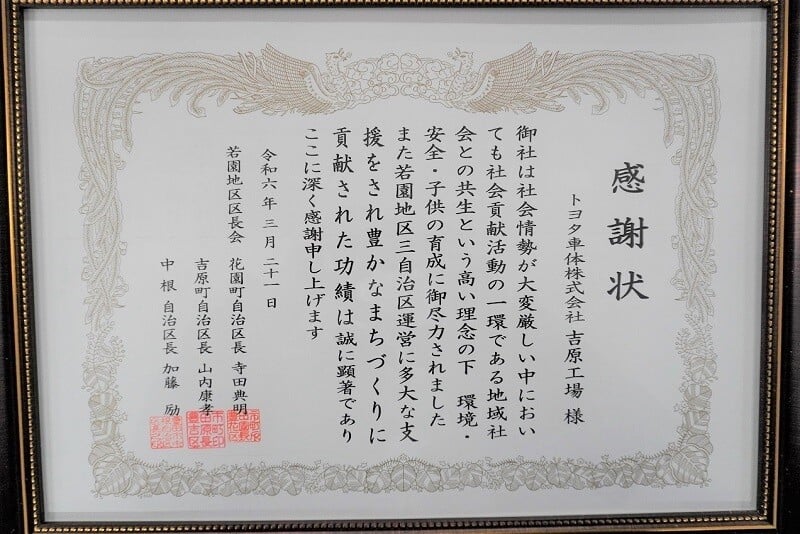 感謝状
トヨタ車体株式会社 吉原工場 様
御社は社会情勢が大変厳しい中におい
ても社会貢献活動の一環である地域社
会との共生という高い理念の下 環境・
安全・子供の育成に御尽力されました
また若園地区三自治区運営に多大な支
援をされ豊かなまちづくりに
貢献された功績は誠に顕著であり
ここに深く感謝申し上げます
令和六年三月二十一日
若園地区区長会 花園町自治区長 寺田典明
吉原町自治区長 山内康孝
中根自治区長 加藤 励